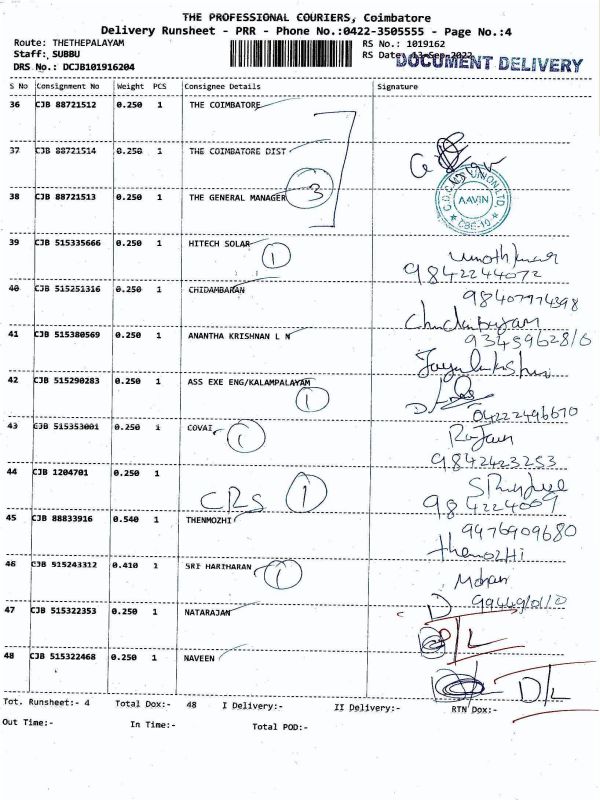 THE PROFESSIONAL COURIERS, Coimbatore
Delivery Runsheet - PRR - Phone No.:0422-3505555 - Page No.:4
Route: THETHEPALAYAM RS No.: 1019162
Staff: SUBBU RS Date: 13-Sep-2022
DOCUMENT DELIVERY
DRS No.: DCJB101916204
S No Consignment No Weight PCS Consignee Details Signature
36 CJB 88721512 0.250 1 THE COIMBATORE
37 CJB 88721514 0.250 1 THE COIMBATORE DIST
38 CJB 88721513 0.250 1 THE GENERAL MANAGER 3
AAVIN
CBE-10
39 CJB 515335666 0.250 1 HITECH SOLAR 1
9842244072
40 CJB 515251316 0.250 1 CHIDAMBARAN
98407974398
41 CJB 515380569 0.250 1 ANANTHA KRISHNAN L N
42 CJB 515290283 0.250 1 ASS EXE ENG/KALAMPALAYAM 1
04222496670
43 CJB 515353001 0.250 1 COVAI 1
Rajan
9842423253
44 CJB 1204701 0.250 1
CRS 1
45 CJB 88833916 0.540 1 THENMOZHI
9476909680
46 CJB 515243312 0.410 1 SRI HARIHARAN 1
Mohan
47 CJB 515322353 0.250 1 NATARAJAN
D/L
48 CJB 515322468 0.250 1 NAVEEN
D/L
Tot. Runsheet:- 4 Total Dox:- 48 I Delivery:- II Delivery:- RTN Dox:-
Out Time:- In Time:- Total POD:-